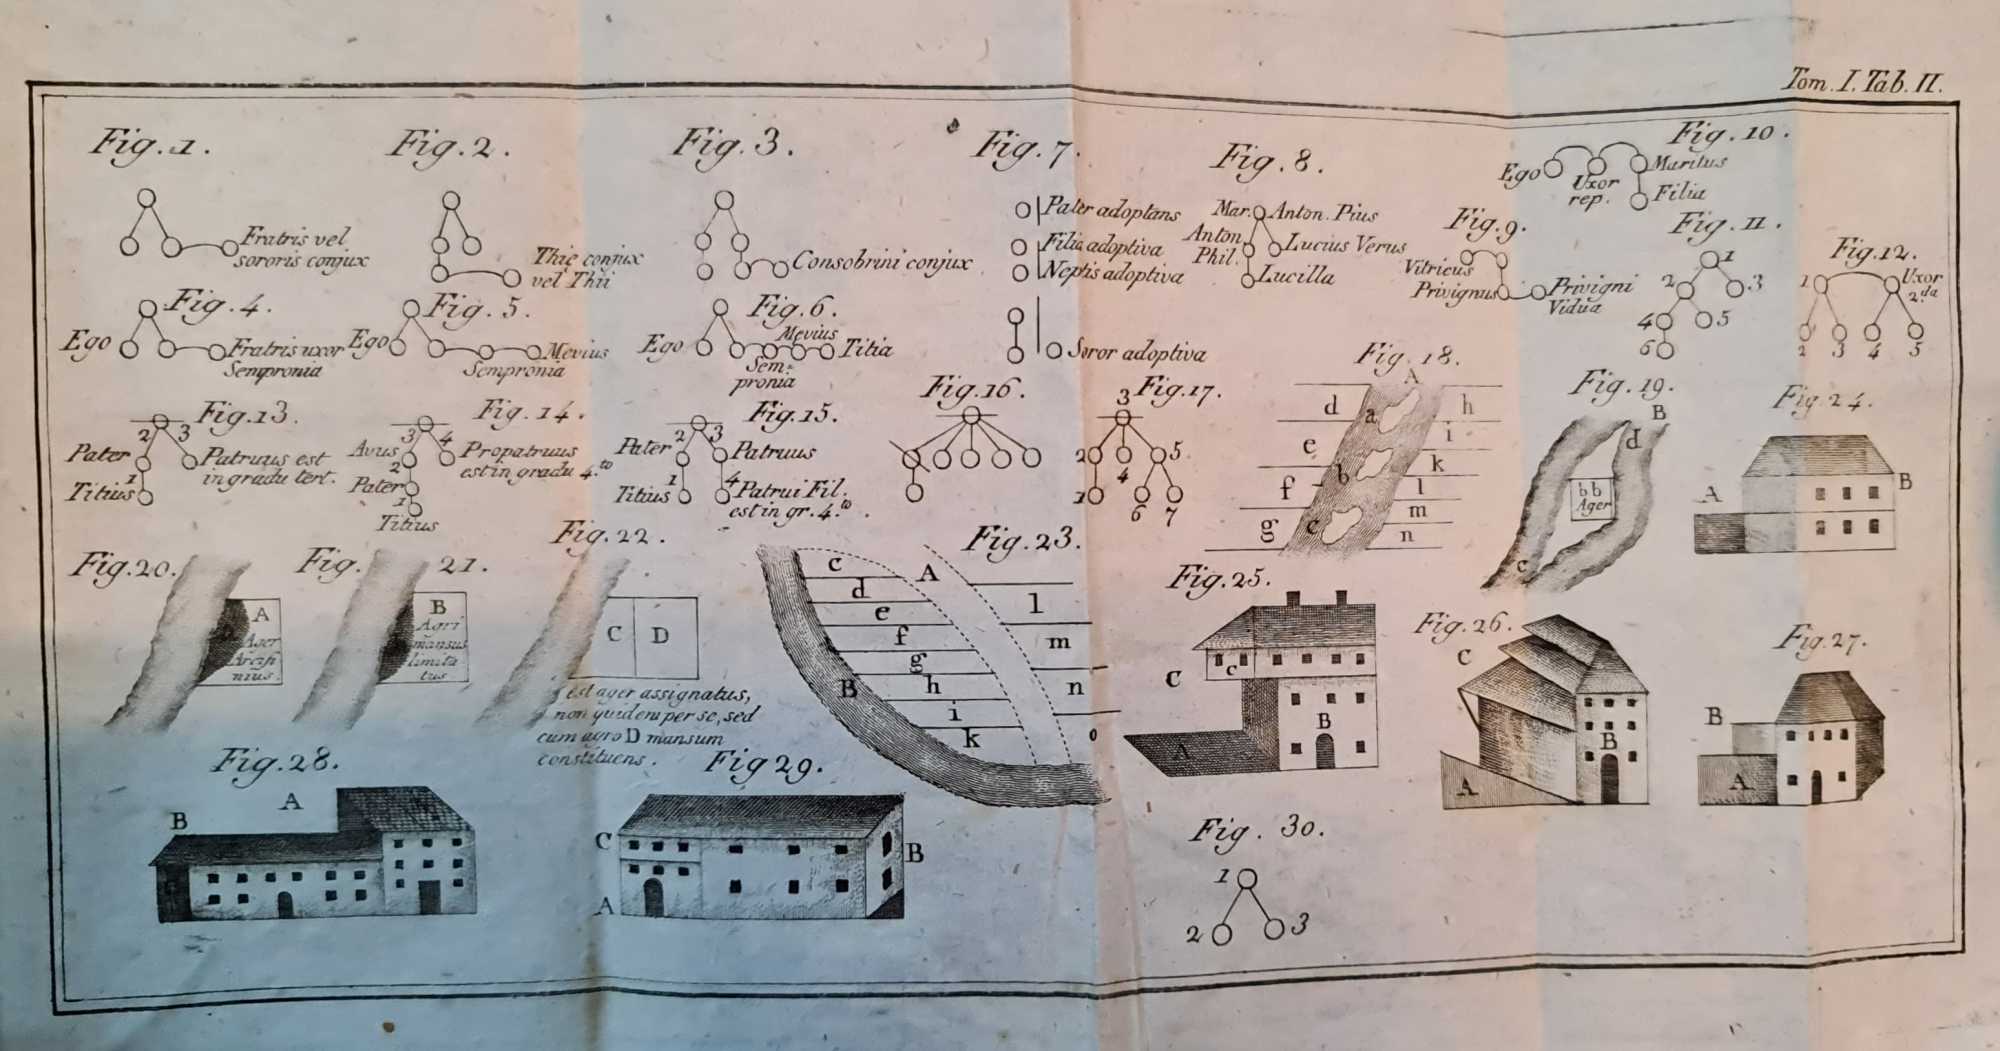 Tom. I. Tab. II.
Fig. 1.
Fratris vel
sororis conjux
Fig. 2.
Thię conjux
vel Thii
Fig. 3.
Consobrini conjux
Fig. 7.
Pater adoptans
Filia adoptiva
Neptis adoptiva
Soror adoptiva
Fig. 8.
Mar. Anton. Pius
Anton. Lucius Verus
Phil.
Lucilla
Fig. 9.
Vitricus
Privignus Privigni
Vidua
Fig. 10.
Ego Maritus
Uxor
rep. Filia
Fig. 11.
1
2 3
4 5
6
Fig. 12.
1 Uxor
2.da
2 3 4 5
Fig. 4.
Ego Fratris uxor
Sempronia
Fig. 5.
Ego Mevius
Sempronia
Fig. 6.
Mevius
Ego Titia
Sem=
pronia
Fig. 13.
2 3
Pater Patruus est
in gradu tert.
1
Titius
Fig. 14.
3 4
Avus Propatruus
est in gradu 4.to
2
Pater
1
Titius
Fig. 15.
2 3
Pater Patruus
1 4
Titius Patrui Fil.
est in gr. 4.to
Fig. 16.
Fig. 17.
3
2 4 5
1 6 7
Fig. 18.
A
d a h
e i
b k
f l
g c m
n
Fig. 19.
B
d
b b
Ager
c
Fig. 24.
A B
Fig. 20.
A
Ager
Arcifi
nius.
Fig. 21.
B
Agri
mansus
limita
tus
Fig. 22.
C D
est ager assignatus,
non quidem per se, sed
cum agro D mansum
constituens.
Fig. 23.
c A
d l
e
f m
g
B h n
i
k o
Fig. 25.
C c
B
A
Fig. 26.
C
B
A
Fig. 27.
B
A
Fig. 28.
A
B
Fig 29.
C
B
A
Fig. 30.
1
2 3